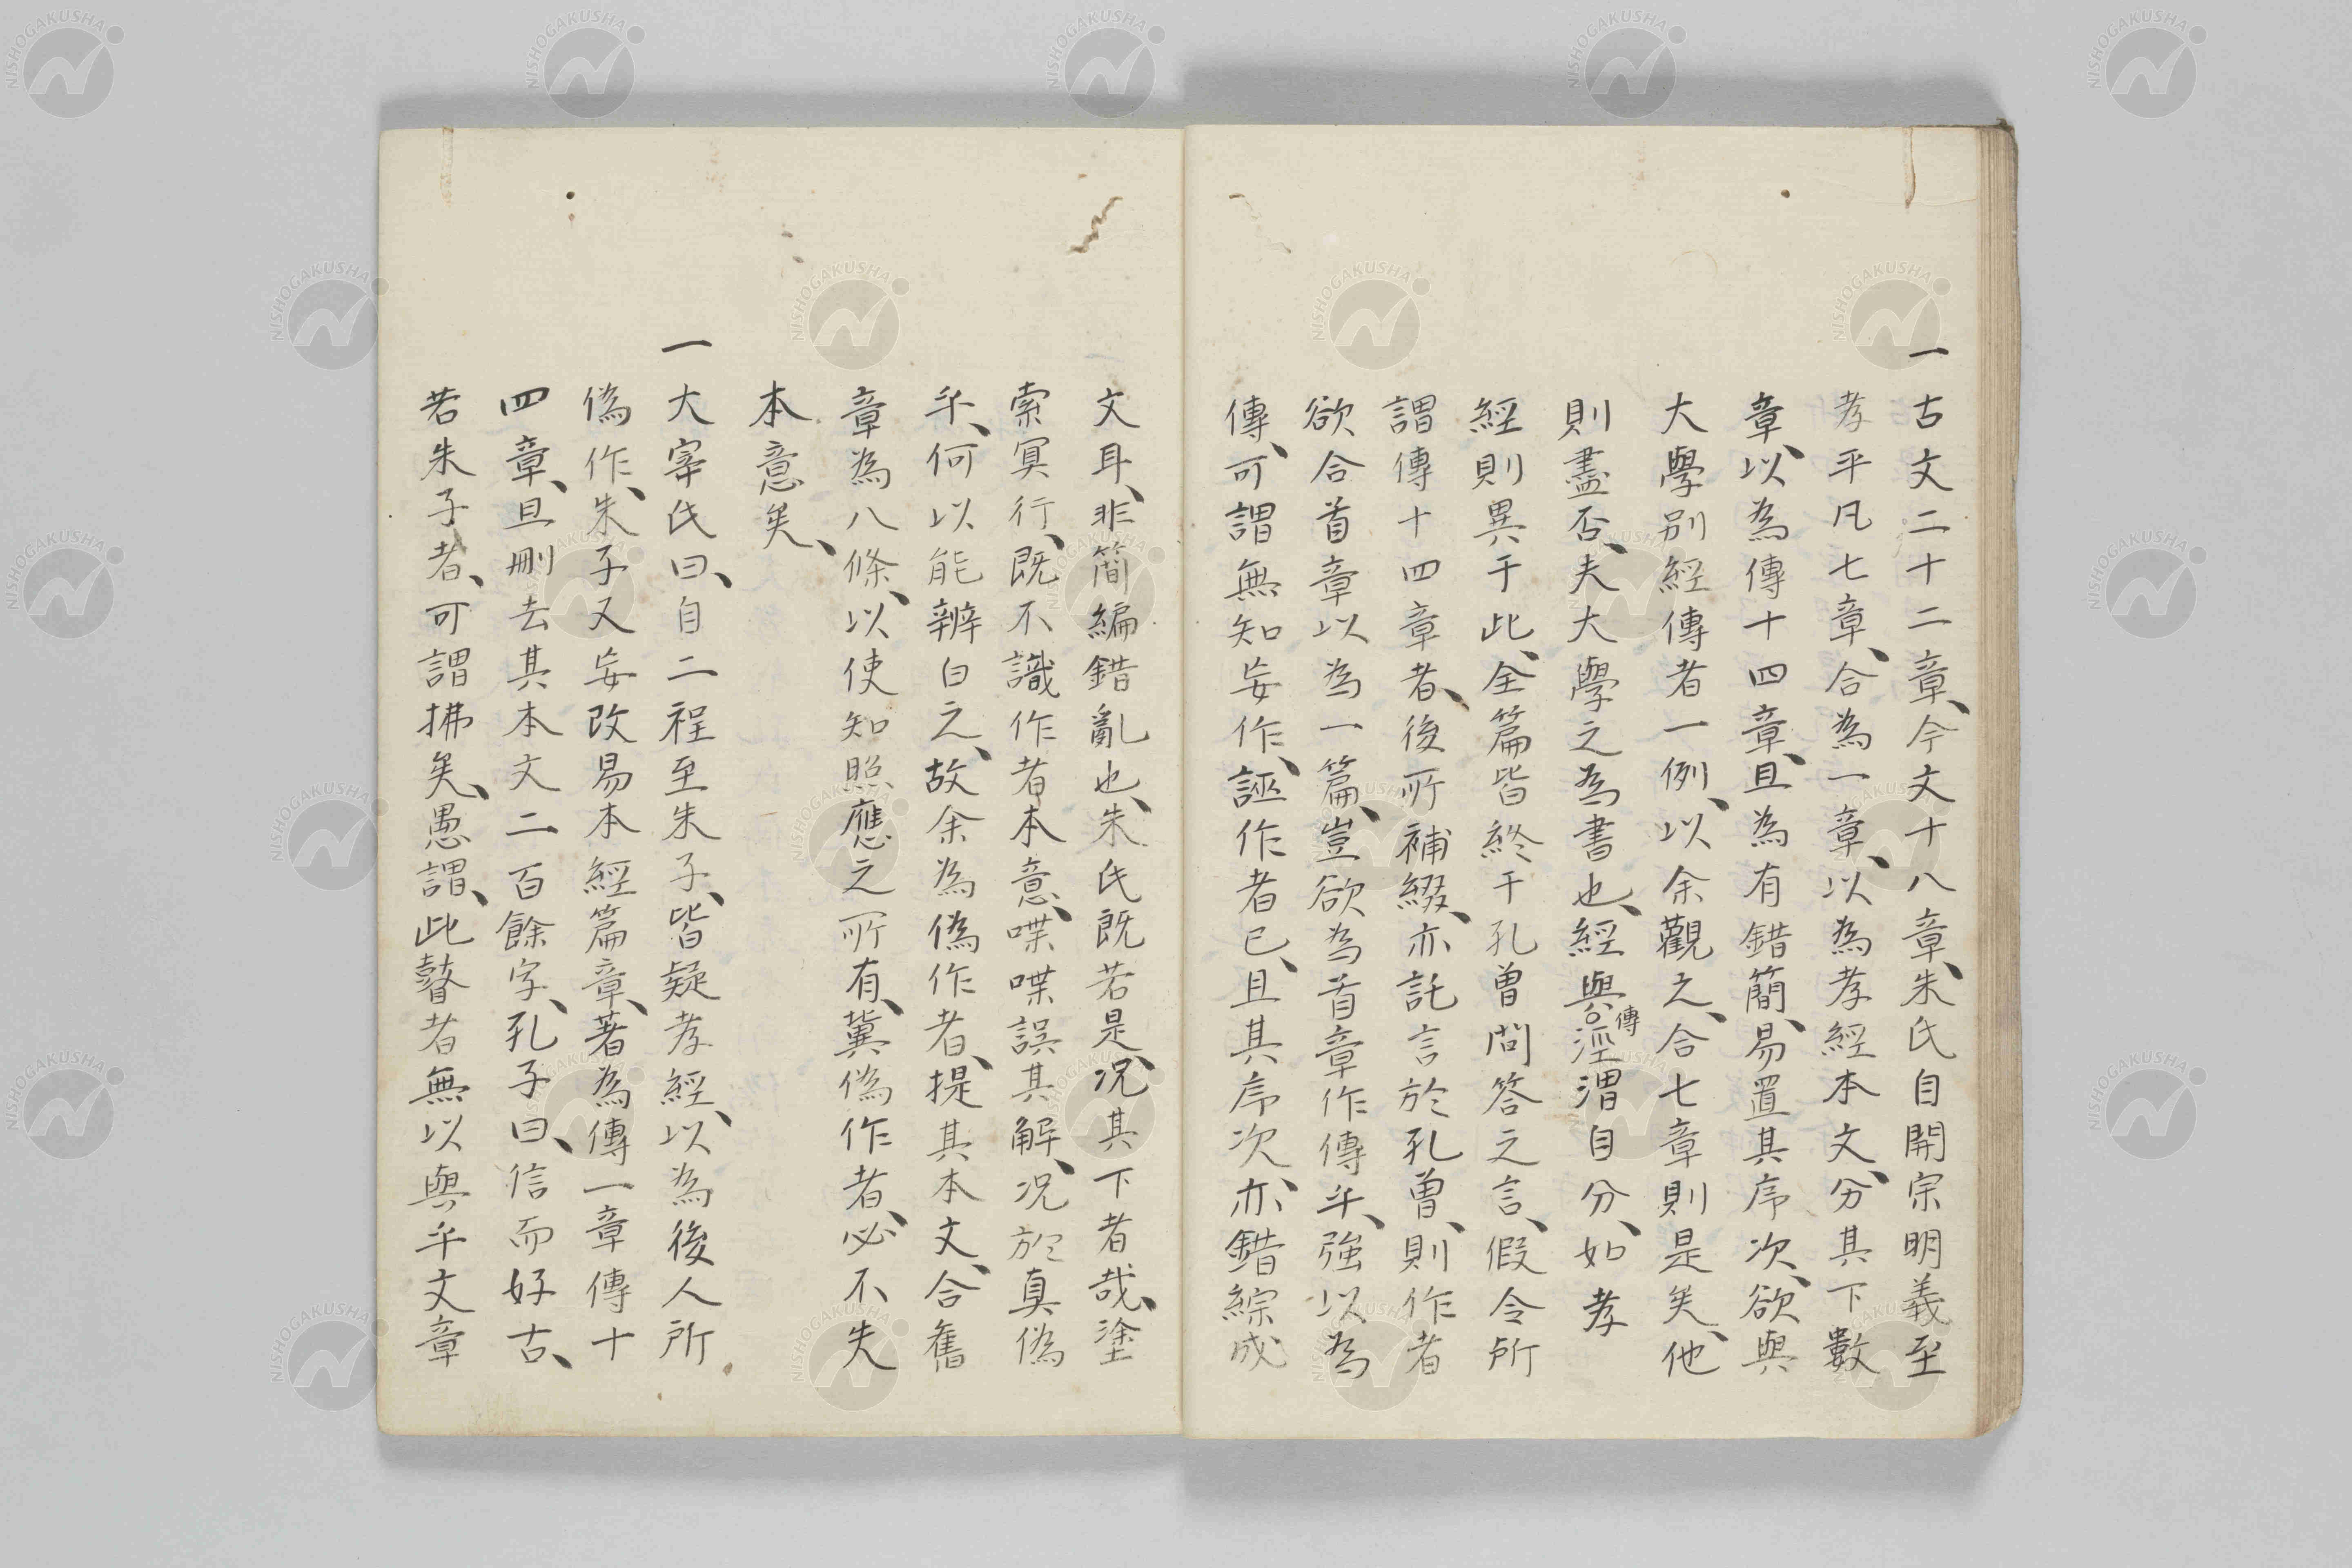 一古文二十二章、今文十八章、朱氏自開宗明義至
孝平凡七章、合為一章、以為孝經本文、分其下數
章、以為傳十四章、且為有錯簡、易置其序次、欲與
大學別經傳者一例、以余觀之、合七章則是矣、他
則盡否、夫大學之為書也、經與傳涇渭自分、如孝
經則異于此、全篇皆終于孔曽問答之言、假令所
謂傳十四章者、後所補綴、亦託言於孔曽、則作者
欲合首章以為一篇、豈欲為首章作傳乎、強以為
傳、可謂無知妄作、誣作者已、且其序次、亦錯綜成
文耳、非簡編錯亂也、朱氏既若是、况其下者哉、塗
索冥行、既不識作者本意、喋喋誤其解、况於真偽
乎、何以能辨白之、故余為偽作者、提其本文、合舊
章為八條、以使知照應之所有、冀偽作者、必不失
本意矣、
一大宰氏曰、自二程至朱子、皆疑孝經、以為後人所
偽作、朱子又妄改易本經篇章、著為傳一章傳十
四章、且刪去其本文二百餘字、孔子曰、信而好古、
若朱子者、可謂拂矣、愚謂、此瞽者無以與乎文章
NISHOGAKUSHA